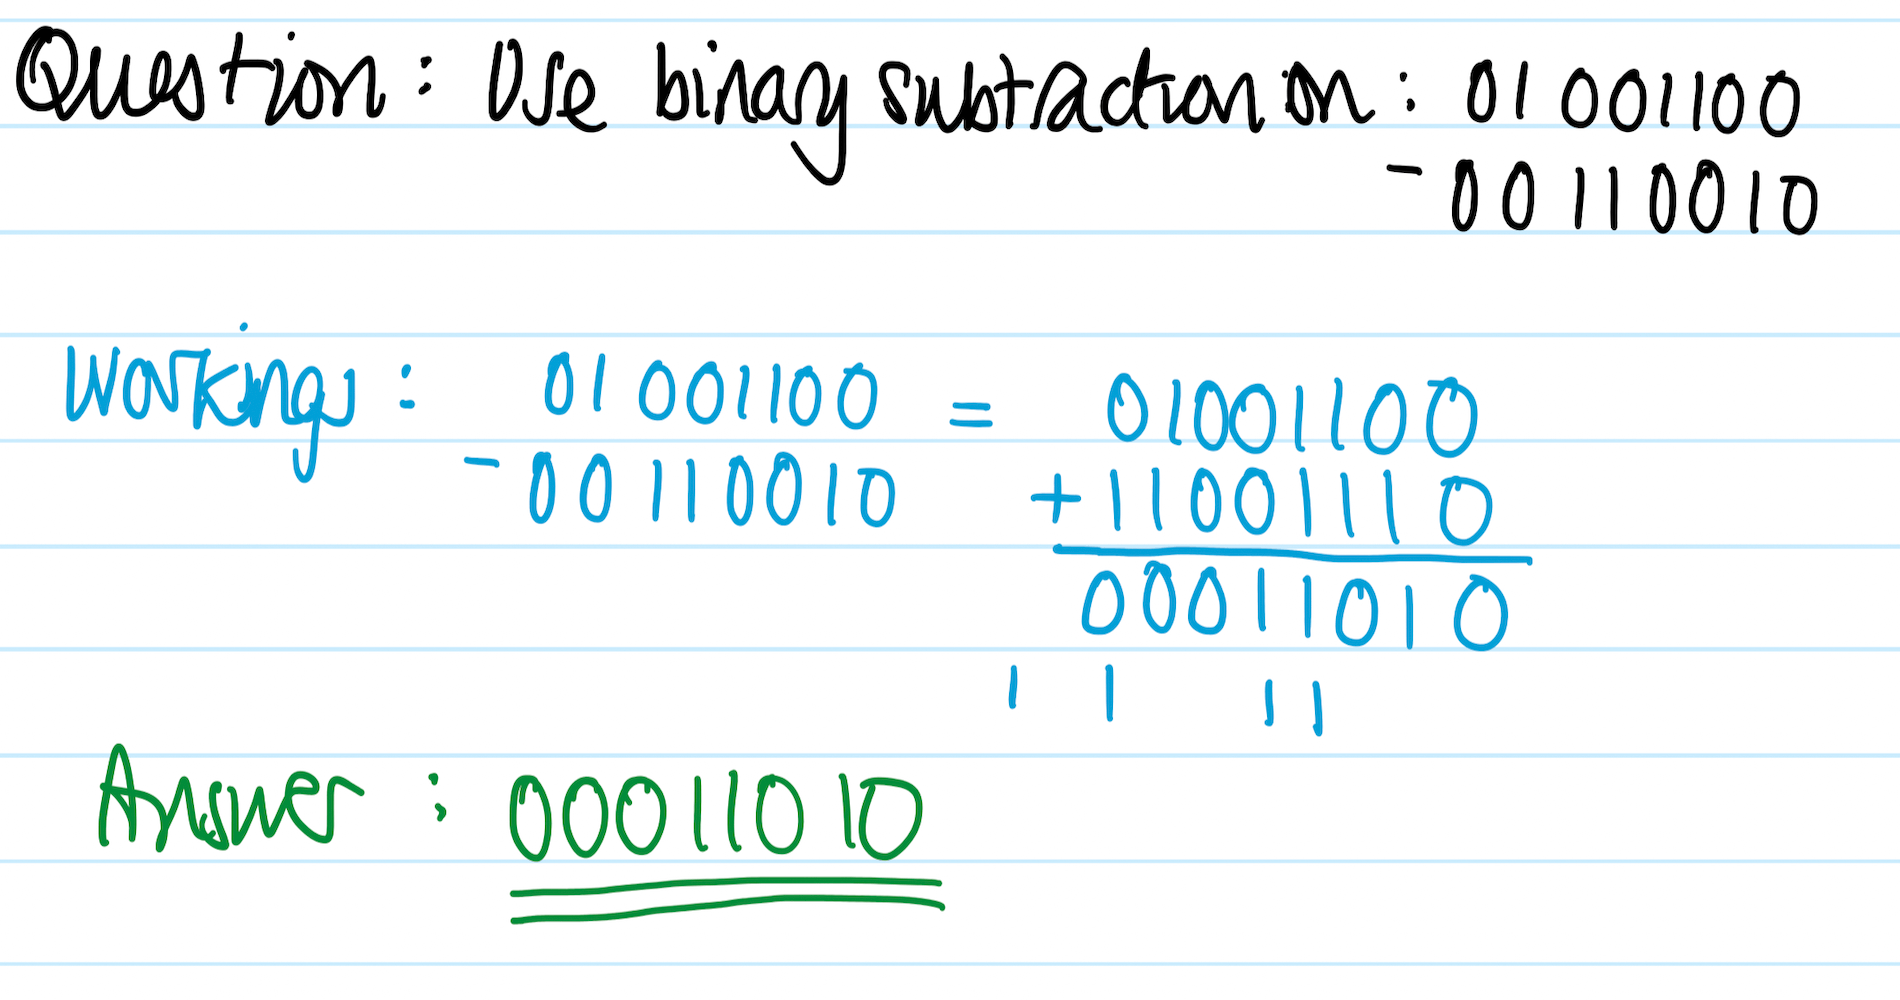 Question: Use binary subtraction on: 01001100
- 00110010
Workings: 01001100 = 01001100
- 00110010 + 11001110
00011010
1 1 1 1
Answer: 00011010